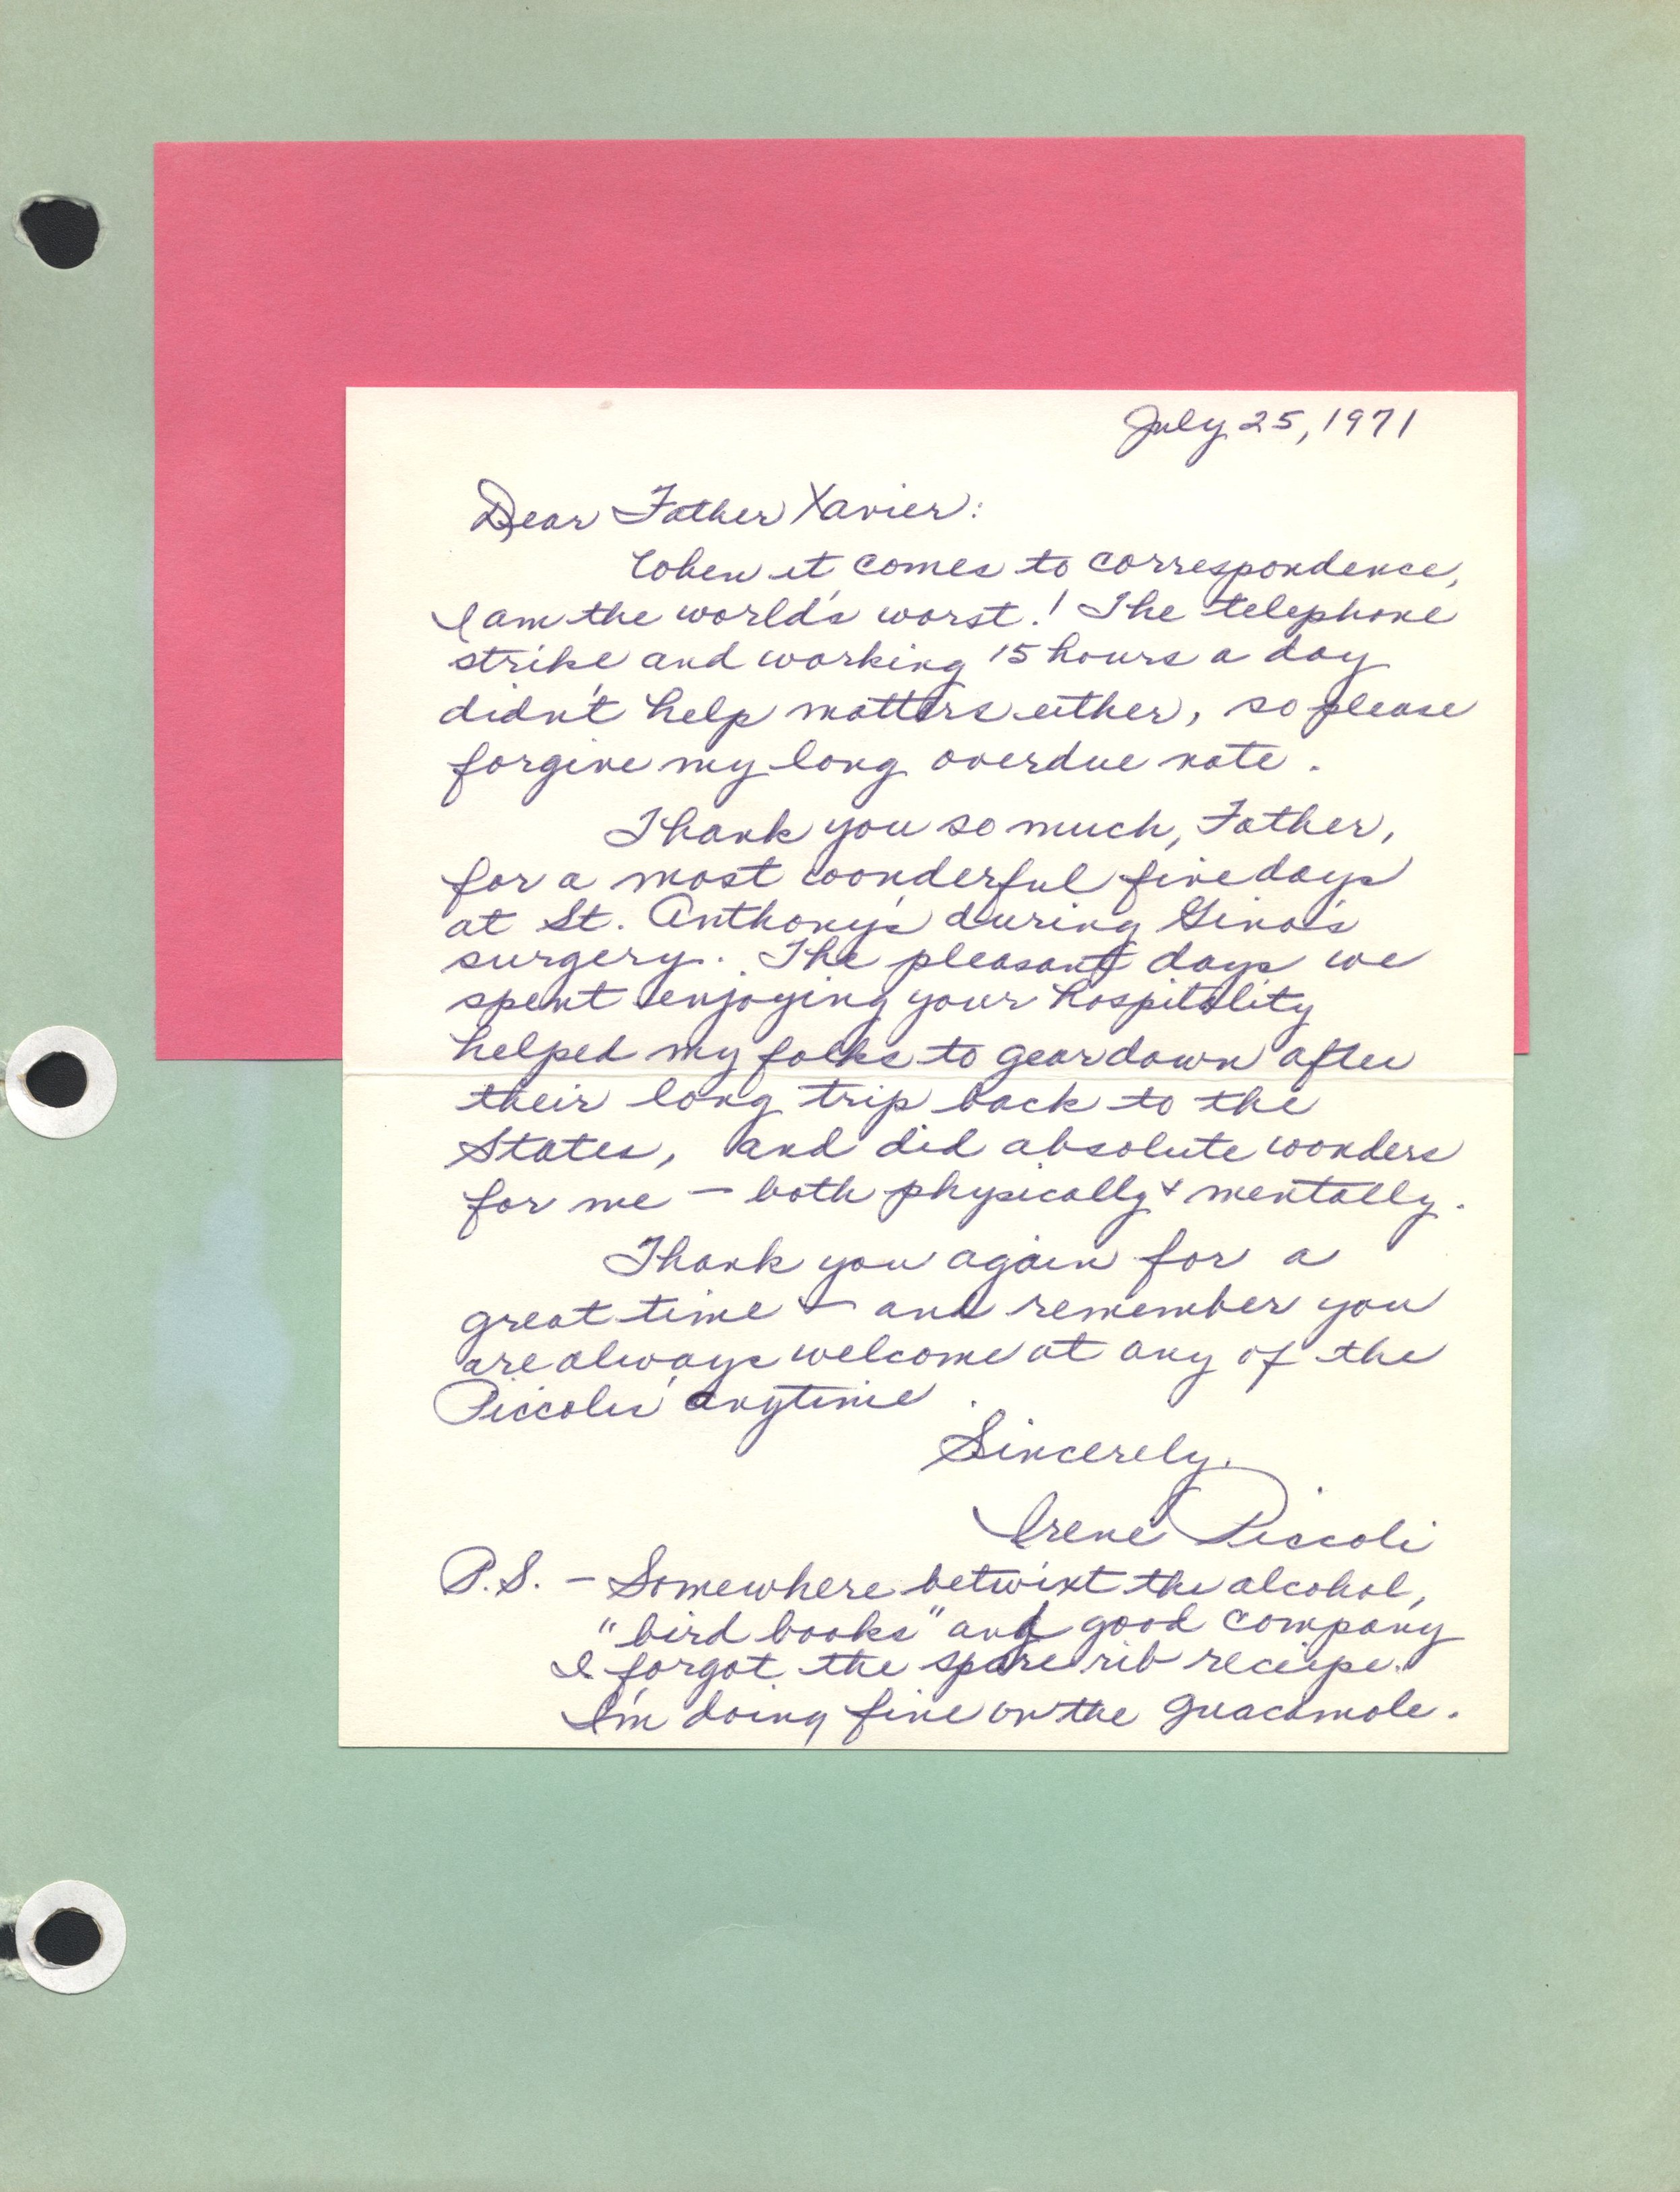 July 25, 1971
Dear Father Xavier:
When it comes to correspondence,
I am the world's worst! The telephone
strike and working 15 hours a day
didn't help matters either, so please
forgive my long overdue note.
Thank you so much, Father,
for a most wonderful five days
at St. Anthony's during Gino's
surgery. The pleasant days we
spent enjoying your hospitality
helped my folks to gear down after
their long trip back to the
States, and did absolute wonders
for me — both physically & mentally.
Thank you again for a
great time — and remember you
are always welcome at any of the
Piccolis' anytime.
Sincerely,
Irene Piccoli
P.S. — Somewhere betwixt the alcohol,
"bird books" and good company
I forgot the spare rib reciepe.
I'm doing fine on the guacamole.